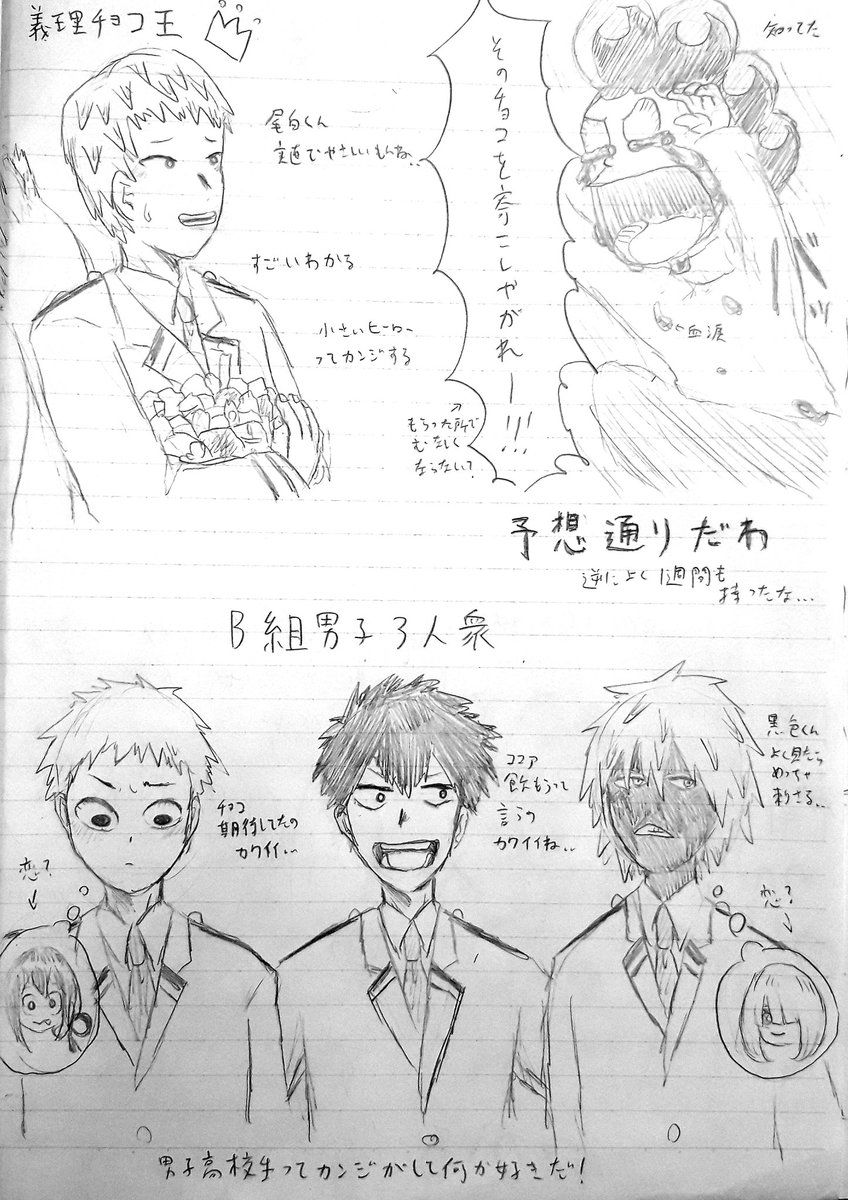 義理チョコ王
尾白くん
実直でやさしいもんね..
すごいわかる
小さいヒーロー
ってカンジする
そのチョコを寄こしやがれー!!!
知ってた
血涙
もらった所で
むなしく
ならない?
予想通りだわ
逆によく1週間も
持ったな...
B組男子3人衆
チョコ
期待してたの
カワイイ..
ココア
飲もうって
言うの
カワイイね..
黒色くん
よく見たら
めっちゃ
刺さる..
恋?
恋?
男子高校生ってカンジがして何か好きだ!